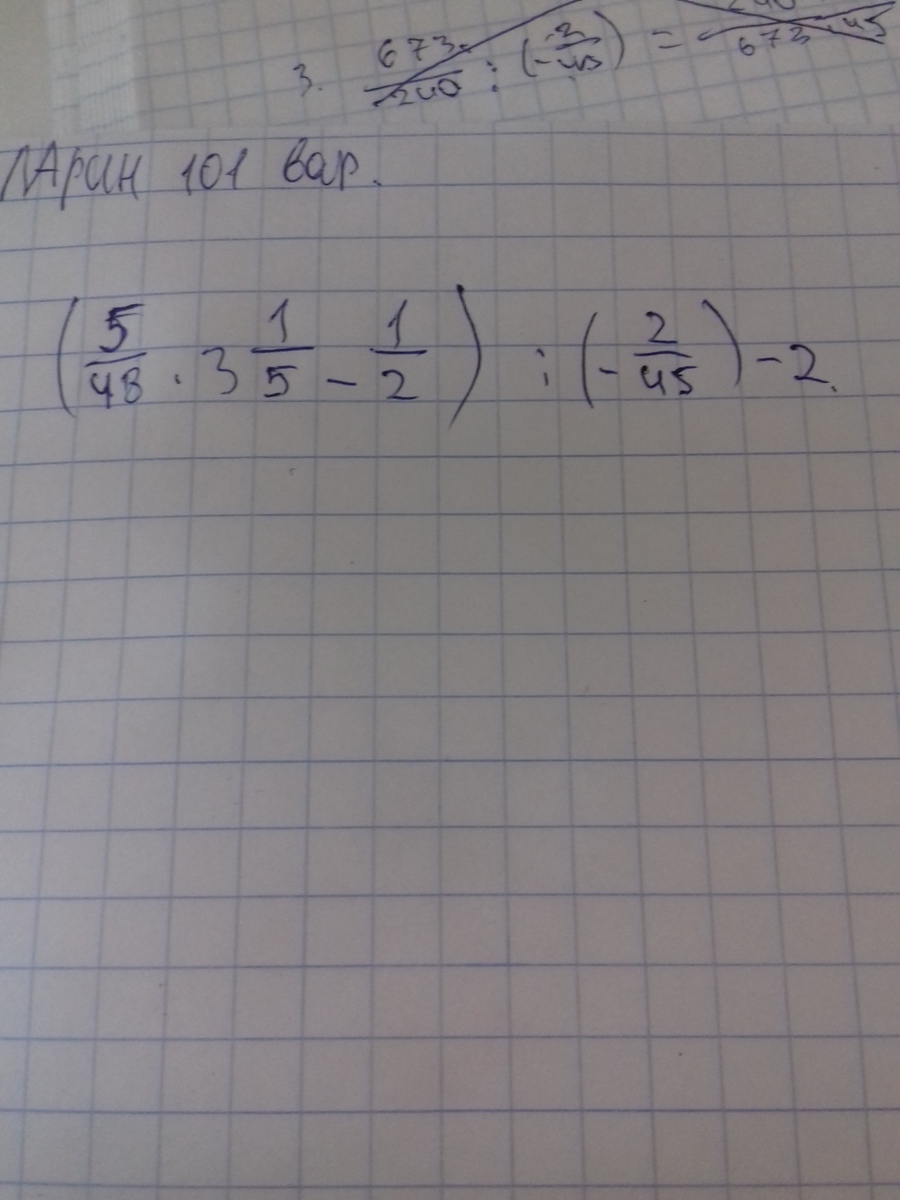 3. 673/240 : (-2/45) = 240/673·45
ЛАрин 101 вар.
(5/48 · 3 1/5 - 1/2) : (-2/45) - 2.